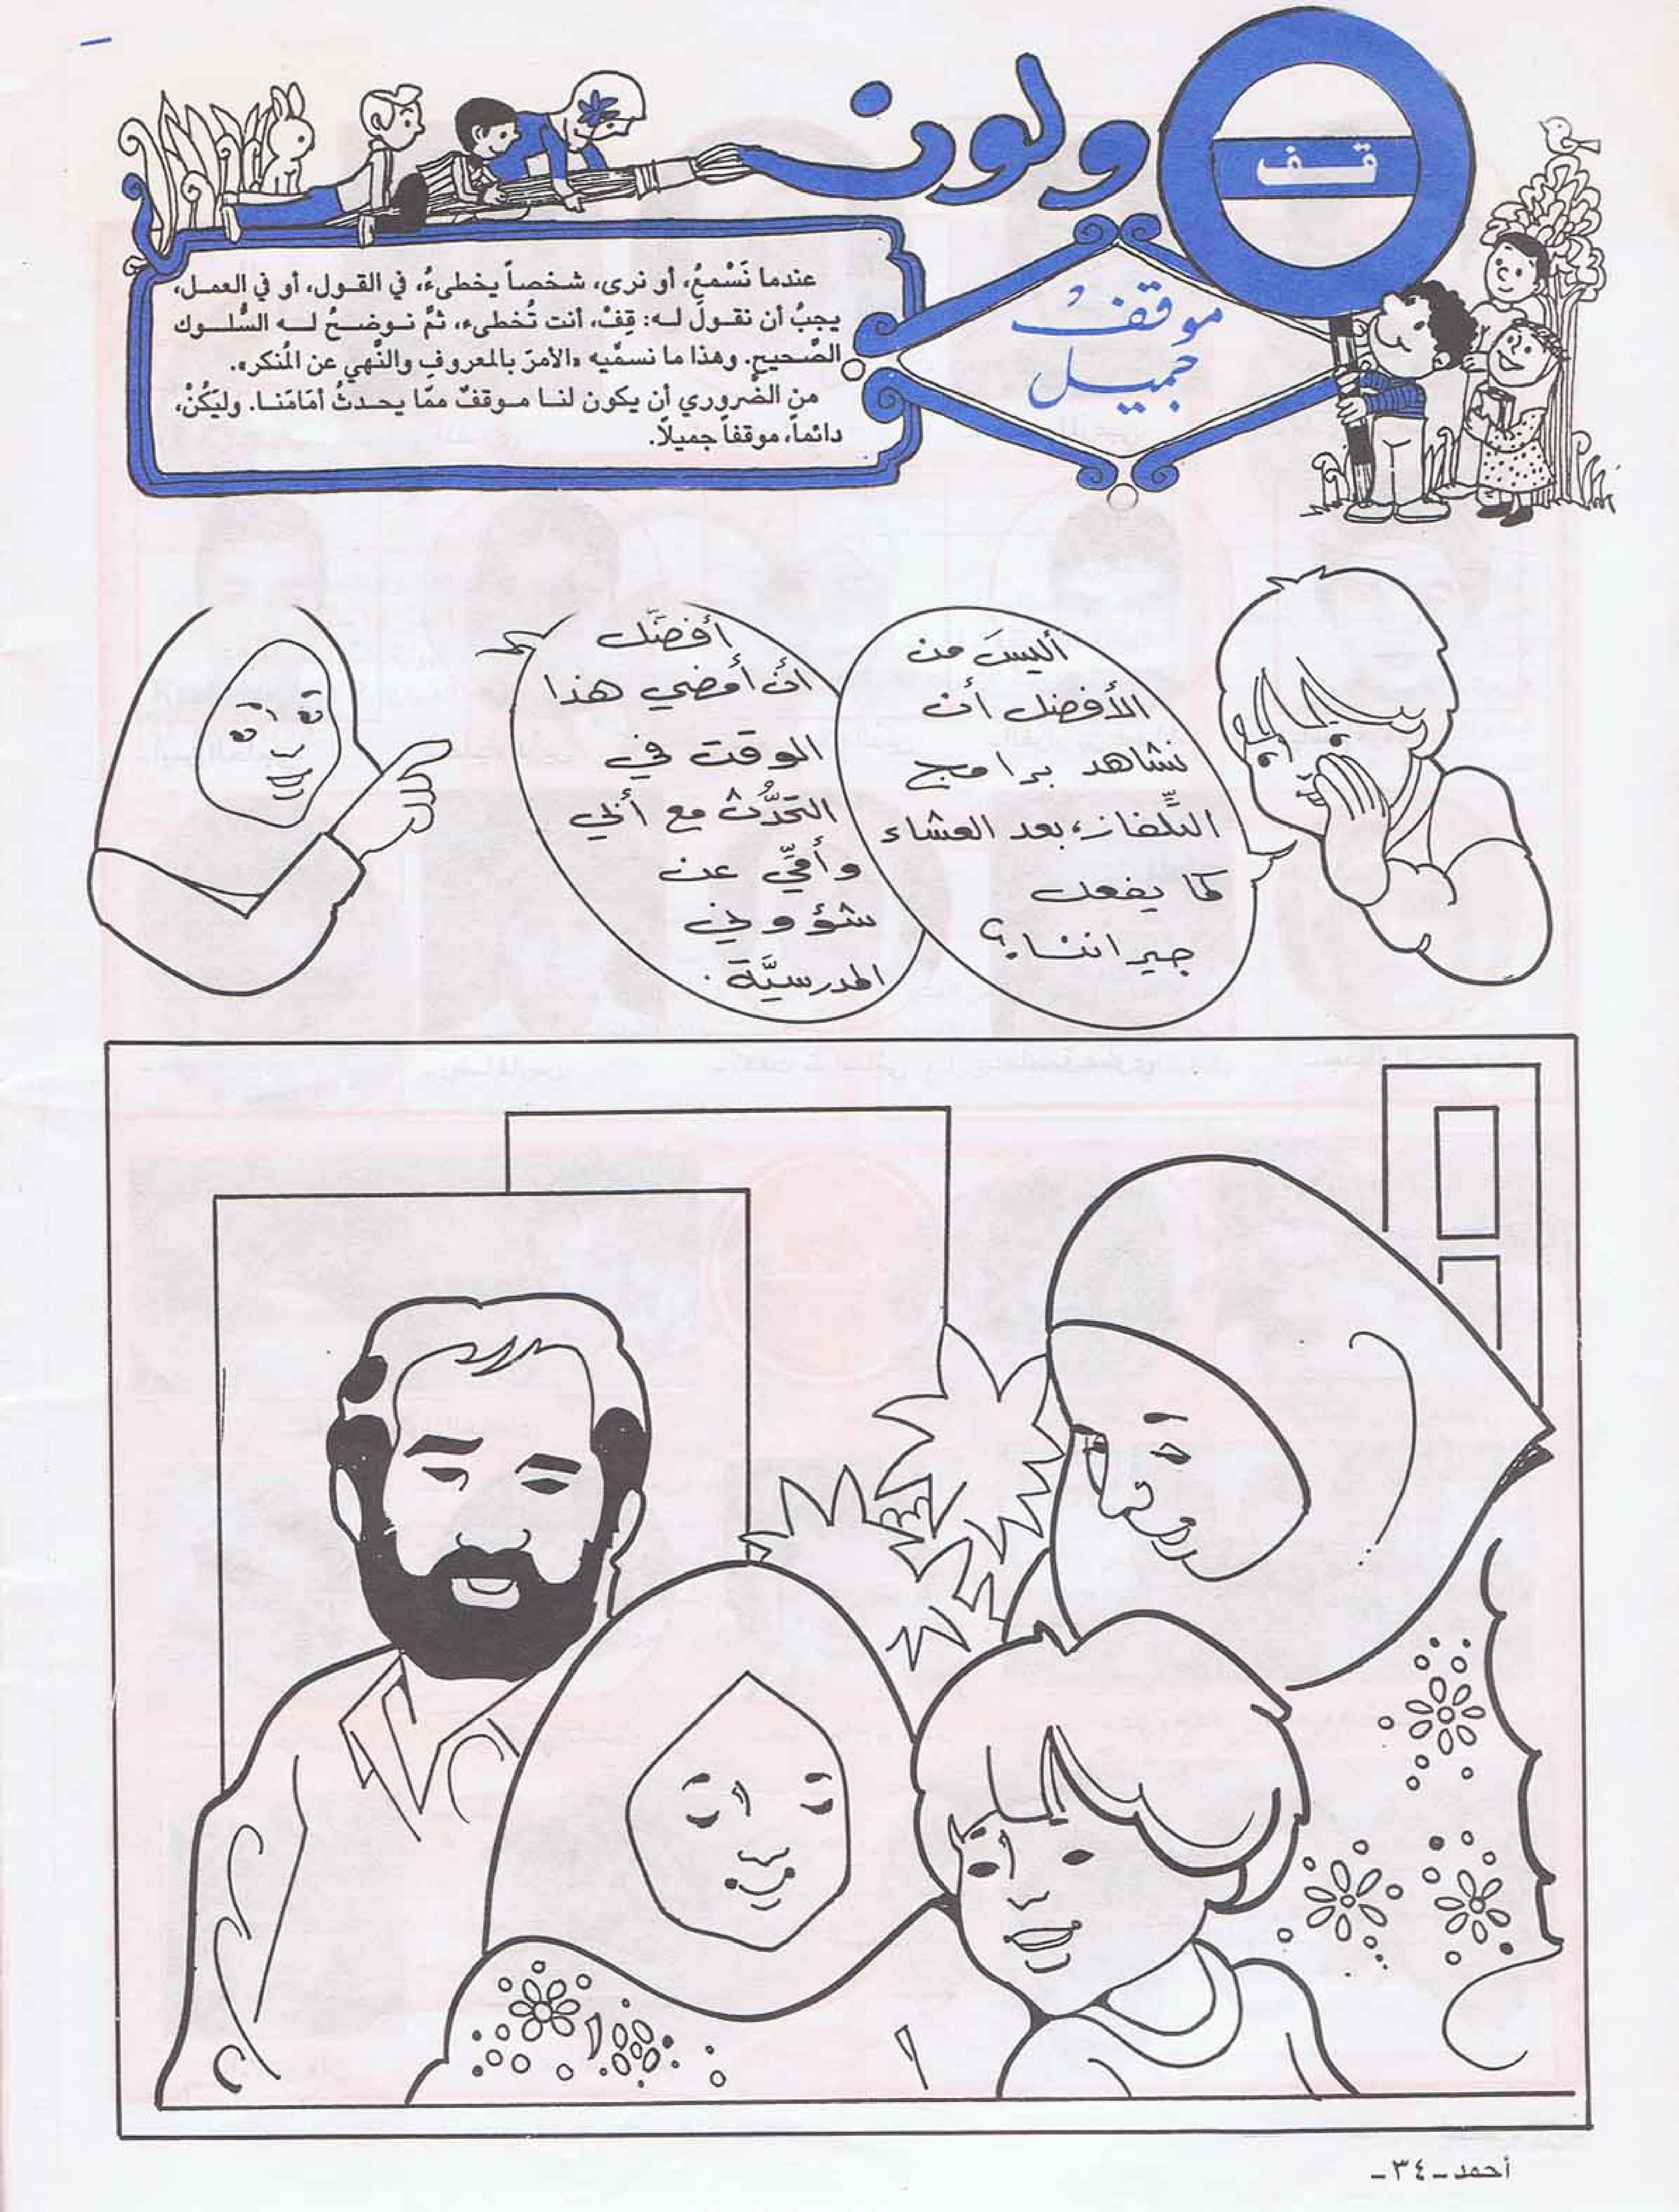 قف
ولون
موقف
جميل
عندما نَسْمعُ، أو نرى، شخصاً يخطىءُ، في القول، أو في العمل،
يجبُ أن نقولَ له: قِفْ، أنت تُخطىء، ثمَّ نوضحُ له السُّلوك
الصَّحيح. وهذا ما نسمِّيه «الأمرَ بالمعروفِ والنَّهي عن المُنكر».
من الضَّروري أن يكون لنا موقفٌ ممّا يحدثُ أمَامَنا. وليَكُنْ،
دائماً، موقفاً جميلًا.
أليسَ من
الأفضل أن
نشاهد برامج
التِّلفاز، بعد العشاء
كما يفعل
جيراننا؟
أفضّل
أن أمضي هذا
الوقت في
التحَدُّث مع أبي
وأمّي عن
شؤوني
المدرسيَّة.
أحمد - ٣٤ -